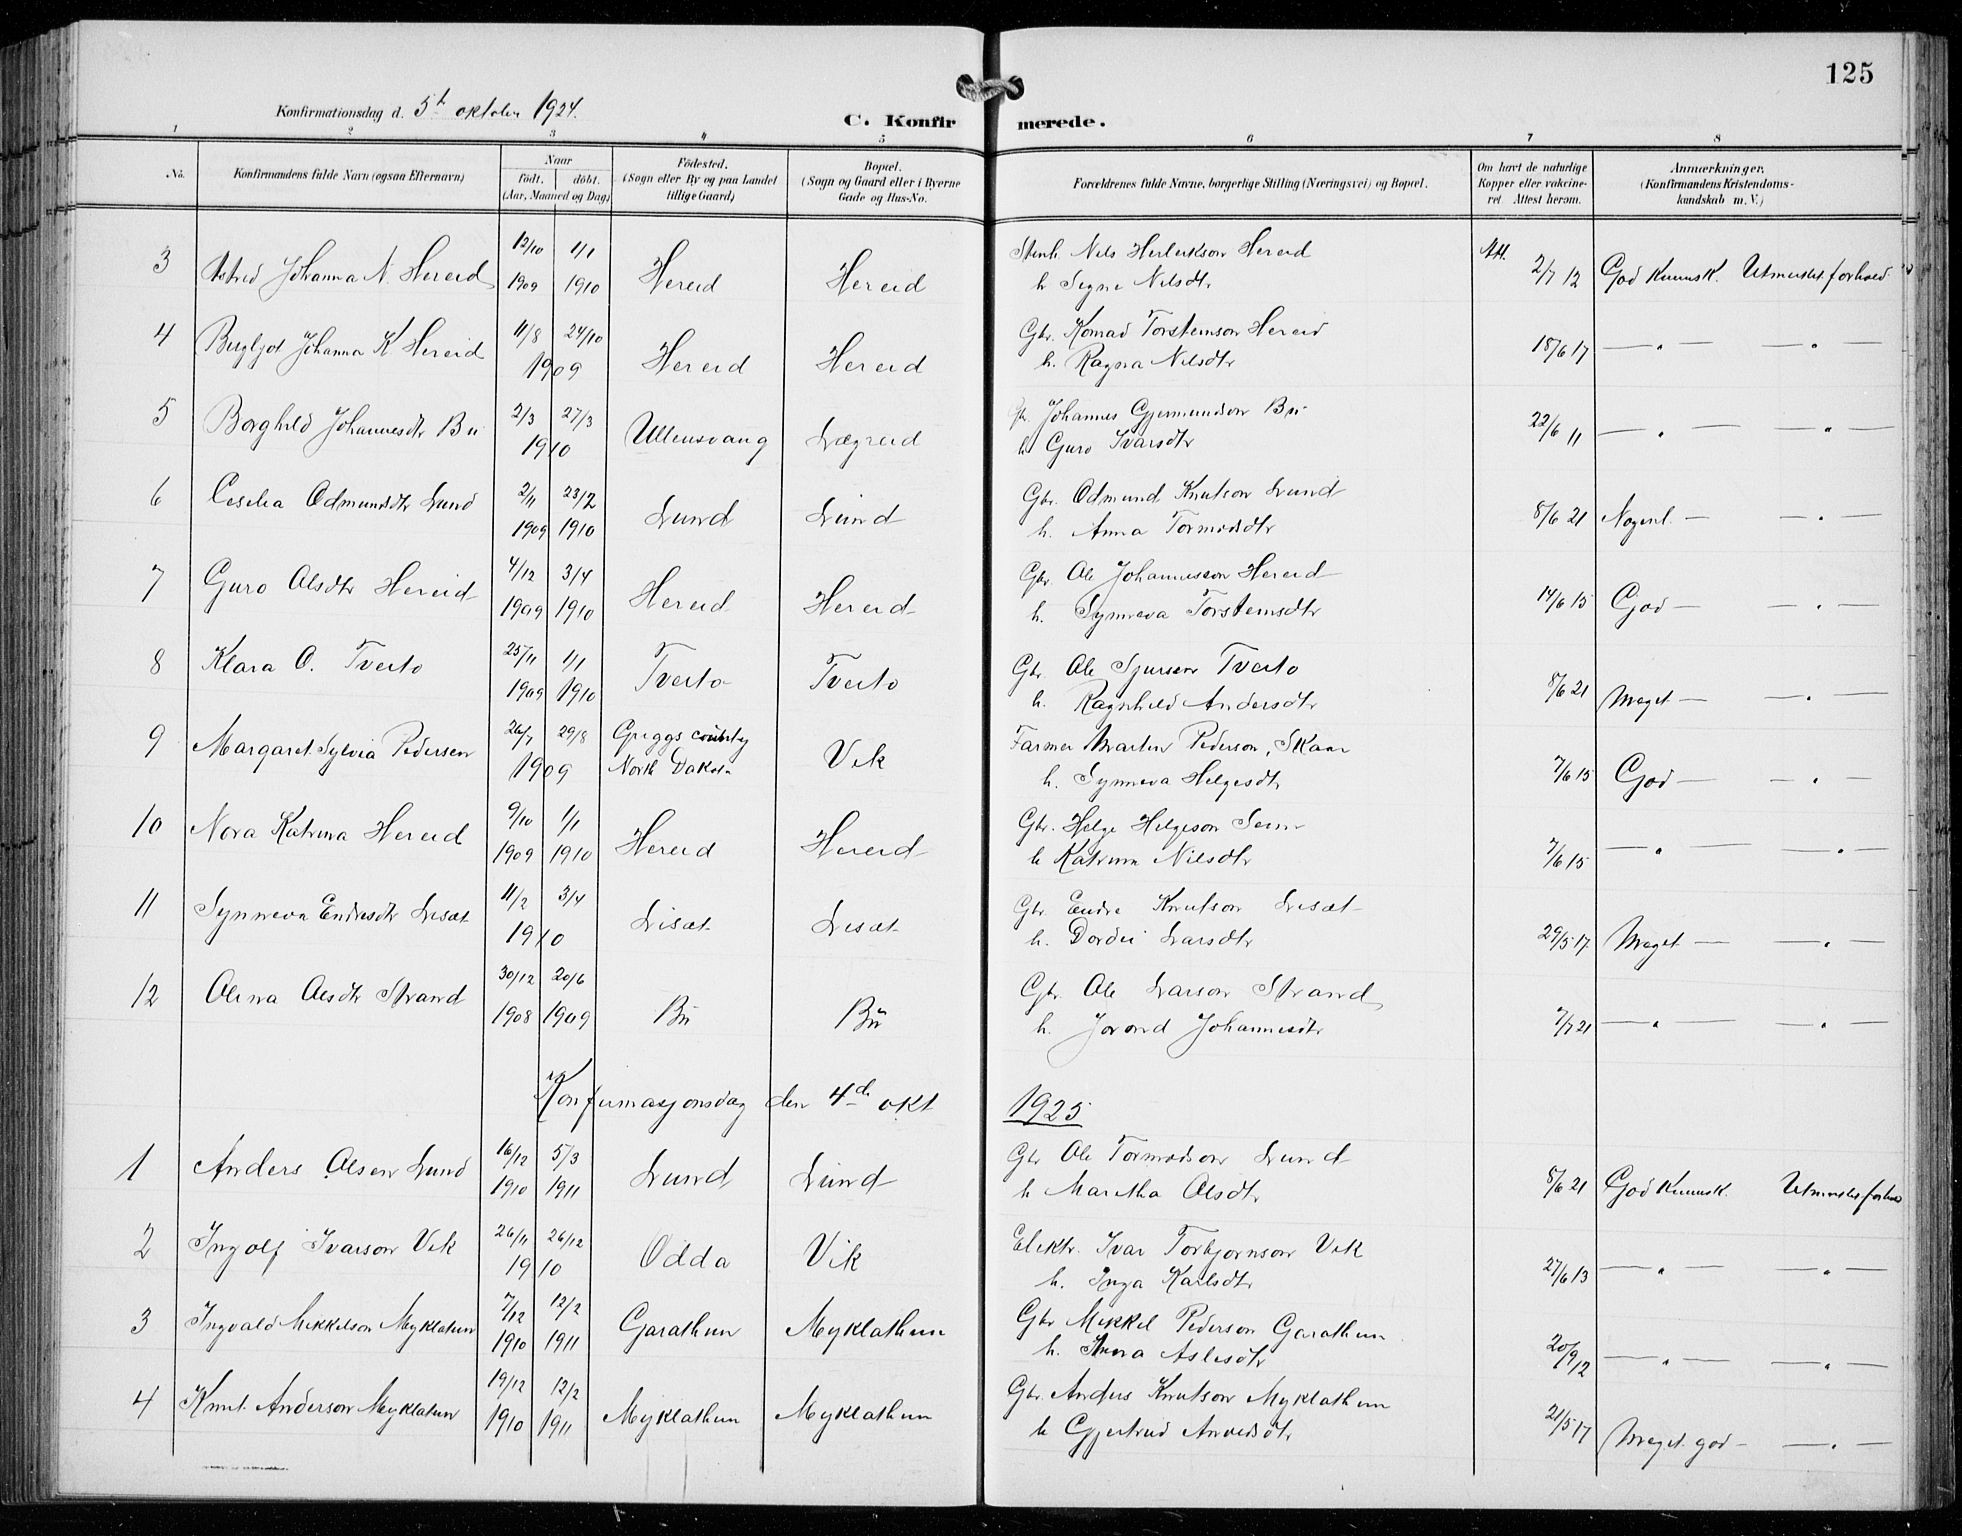 125
Konfirmationsdag d. 5t oktober 1924.
C. Konfir merede.
1 2 3 4 5 6 7 8
No. Konfirmandens fulde Navn (ogsaa Efternavn) Naar født. døbt. (Aar, Maaned og Dag) Fødested. (Sogn eller By og paa Landet tillige Gaard) Bopæl. (Sogn og Gaard eller i Byerne Gade og Hus-No. Forældrenes fulde Navne, borgerlige Stilling (Næringsvei) og Bopæl. Om havt de naturlige Kopper eller vakcineret Attest herom. Anmærkninger, (Konfirmandens Kristendomskundskab m. V.)
3 Astrid Johanna N. Hereid 12/10 1909 1/1 1910 Hereid Hereid Nils Herleikson Hereid Att. 2/7 12 God Kunnsk. Utmerket forhold
h Signe Nilsdtr
4 Bergljot Johanna K Hereid 11/8 24/10 1909 Hereid Hereid Gbr. Konrad Torsteinson Hereid 18/6 17 — " — — " —
h. Ragna Nilsdtr
5 Borghild Johannesdtr Bu 2/3 27/3 1910 Ullensvang Lægreid Johannes Gjermundson Bu 22/6 11 — " — — " —
h Guro Ivarsdtr
6 Cesilia Odmundsdtr Lund 2/11 1909 23/2 1910 Lund Lund Gbr. Odmund Knutson Lund 8/6 21 Nogenl. — — " —
h. Anna Tormodsdtr
7 Guro Olsdtr Hereid 4/12 1909 3/4 1910 Hereid Hereid Gbr. Ole Johannesson Hereid 14/6 15 God — — " —
h. Synneva Torsteinsdtr
8 Klara O. Tveito 25/11 1909 1/1 1910 Tveito Tveito Gbr. Ole Sjurson Tveito 8/6 21 Meget — — " —
h. Ragnhild Andersdtr
9 Margaret Sylvia Pedersen 26/7 29/8 1909 Griggs county North Dakota Vik Farmer Martin Pederson, Skaar 7/6 15 God — — " —
h. Synneva Helgesdtr
10 Nora Katrina Hereid 9/10 1909 1/1 1910 Hereid Hereid Gbr. Helge Helgeson 7/6 15 — " — — " —
h Katrina Nilsdtr
11 Synneva Endresdtr Lisæt 11/2 3/4 1910 Lisæt Lisæt Gbr. Endre Knutson Lisæt 29/5 17. Meget — — " —
h. Dordei Larsdtr
12 Olina Olsdtr Strand 30/12 1908 20/6 1909 Bu Bu Gbr. Ole Larson Strand 7/7 21 — " — — " —
h. Jorond Johannesdtr
Konfirmasjonsdag den 4de okt 1925
1 Anders Olsen Lund 16/12 1910 5/3 1911 Lund Lund Gbr Ole Tormodson Lund 8/6 21 God Kunnsk. Utmerket forhold
h Maritha Olsdtr
2 Ingolf Ivarson Vik 26/11 26/12 1910 Odda Vik Elektr. Ivar Torbjornson Vik 27/6 13 — " — — " —
h. Inga Karlsdtr
3 Ingvald Mikkelson Myklatun 7/12 1910 12/2 1911 Garathun Myklathun Gbr Mikkel Pederson Garathun 20/9 12 — " — — " —
h. Anna Aslesdtr
4 Knut Anderson Myklatun 19/12 1910 12/2 1911 Myklathun Myklathun Gbr. Anders Knutson Myklathun 21/5 17 Meget god — — " —
h Gjertrud